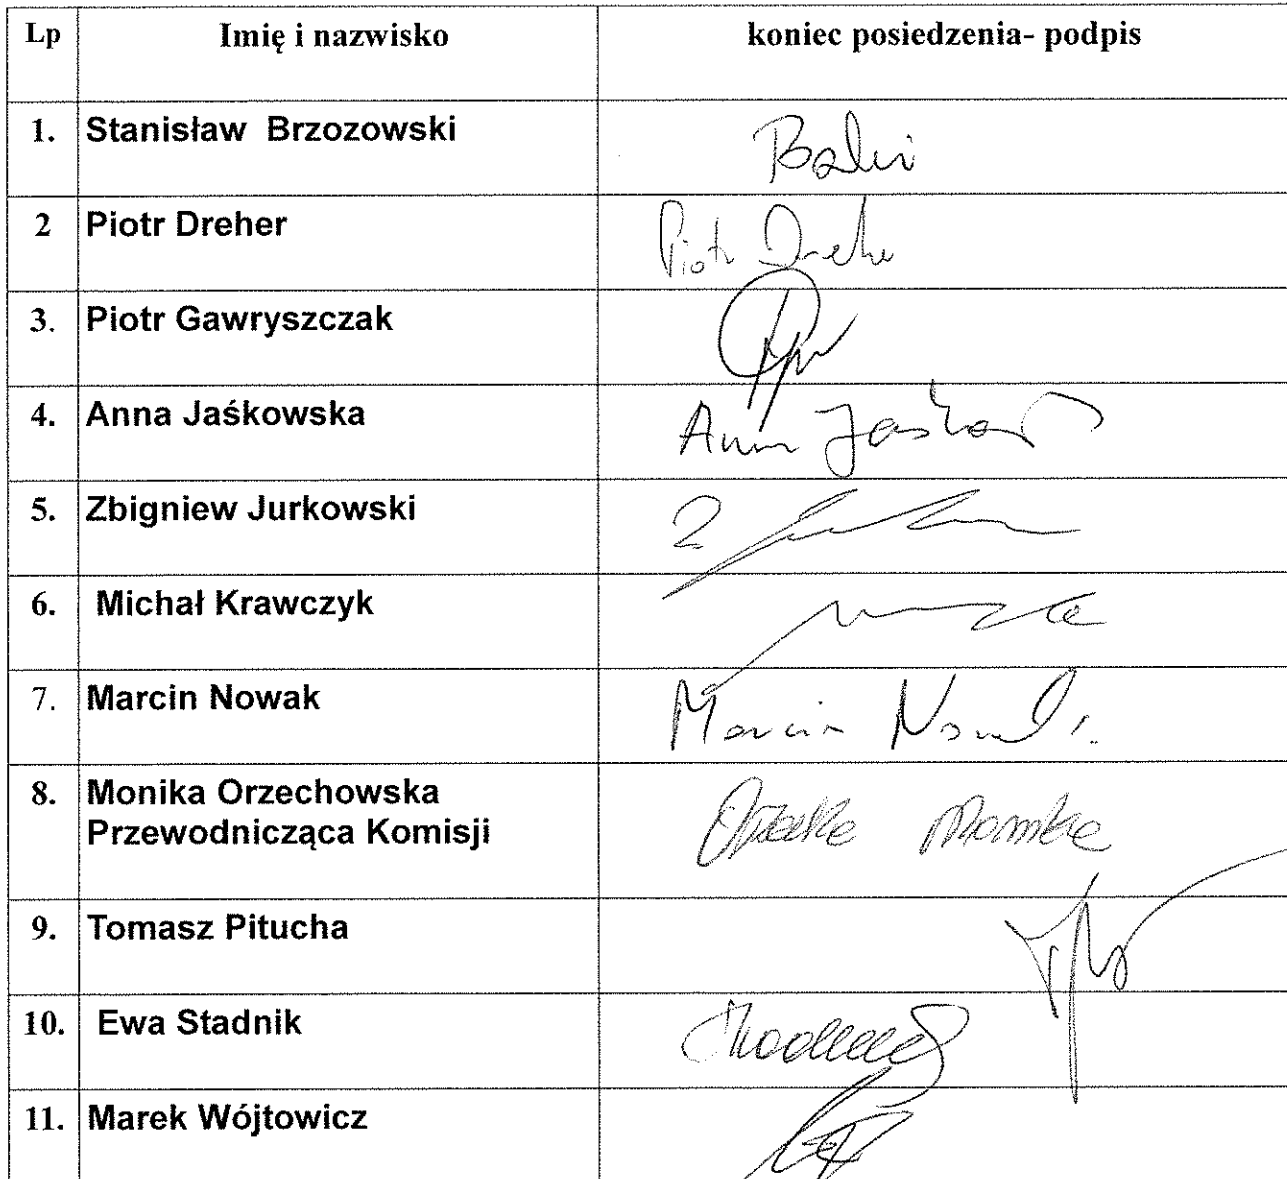 Lp Imię i nazwisko koniec posiedzenia- podpis
1. Stanisław Brzozowski
2 Piotr Dreher Piotr Dreher
3. Piotr Gawryszczak
4. Anna Jaśkowska Anna
5. Zbigniew Jurkowski
6. Michał Krawczyk
7. Marcin Nowak Marcin Nowak
8. Monika Orzechowska
Przewodnicząca Komisji
9. Tomasz Pitucha
10. Ewa Stadnik
11. Marek Wójtowicz